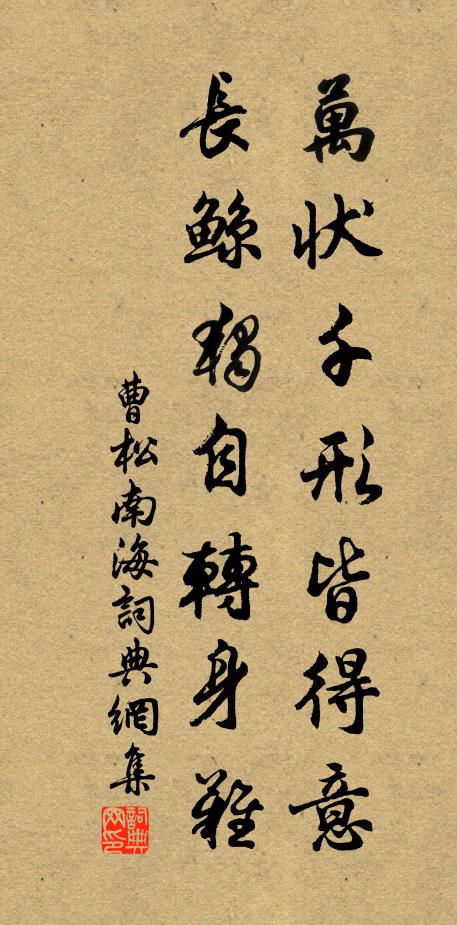 萬状千形皆得意
長鯨獨自轉身難
曹松南海詞典網集
詞典網印